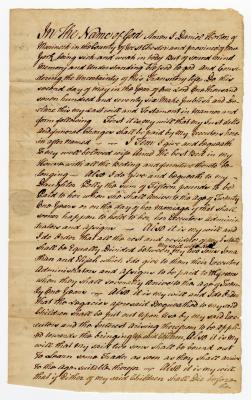 In The Name of God Amen I Daniel Horton of
in the County of West Chester and province of new
York being sick and weak in body but of sound mind
memory and Understanding blessed be god and Considering
the Uncertainty of this Transitory life Do this
second day of may in the year of our Lord One thousand
seven hundred and seventy six Make publish and declare
this my Last will and Testament in manner and
form following First it is my will that my Just debts
and funeral Charges shall be paid by my Executors hereafter
named — Item I give and bequeath
unto my beloved wife Anne the best Bed in my
House with all the beding and furniture thereto belonging
— Also I do give and bequeath to my
Daughter Betty the sum of fifteen pounds to be
paid to her when she shall arive to the age of twenty
One years or on the day of her marriage which shall
soonest happen to hold to her her Executors Administrators
and assigns — Also it is my will and
I do order that all the rest and of my Estate
shall be Equally Divided between my two sons
and Elijah which I do give to them their Executors
Administrators and assigns to be paid to them
when they shall severally arive to the age of twenty
One years — Also it is my will and I do order
that the Legacies aforesaid Bequeathed to my said
Children shall be put out upon Use by my said Executors
and the interest arising therefrom to be applied
towards the bringing up Children Also it is my
will that my said two sons shall be bound out
To Learn some Trade as soon as they shall arive
to the age suitable therefor — Also it is my will
that if Either of my said Children shall Die before